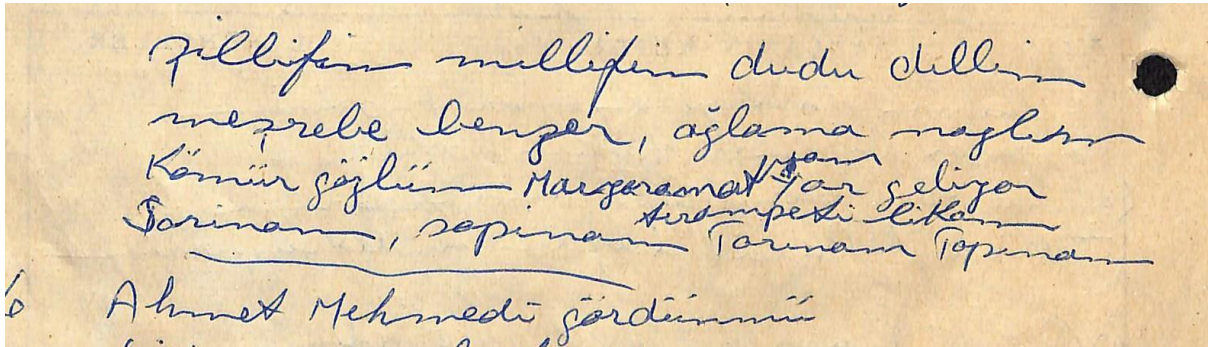 zillifim millifim dudu dillim
meşrebe benzer, ağlama nazlım
yanı
Kömür gözlüm Margaramat yar geliyor
tırampeti likam
Tarinam, sapinam Tarınam Tapınam
6 Ahmet Mehmedi gördünmü